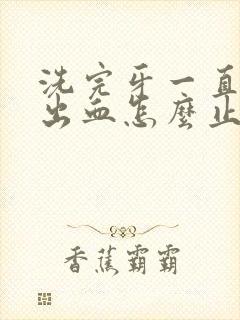 洗完牙一直
出血怎麼止
香蕉霸霸